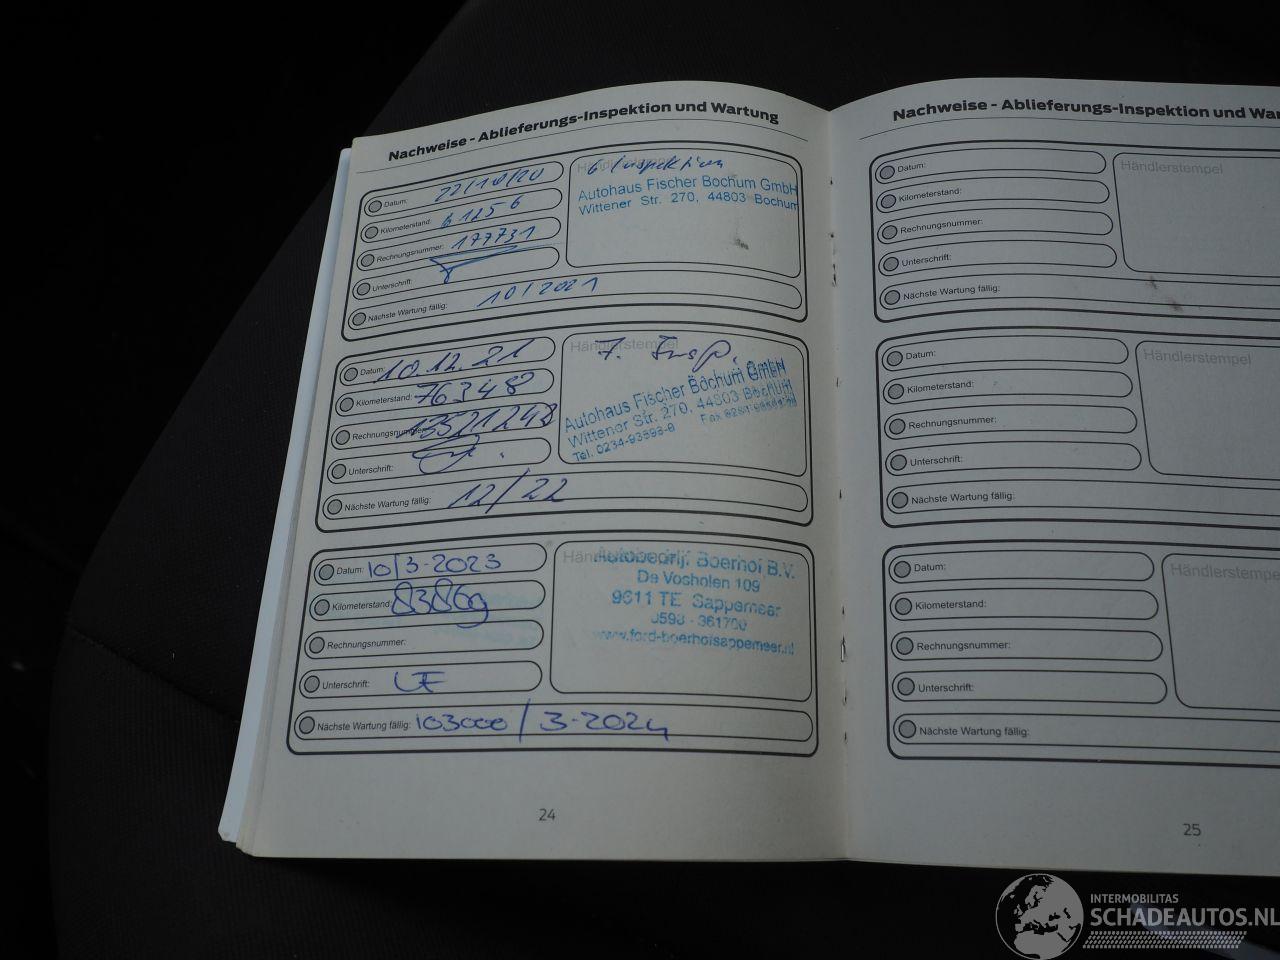 Nachweise - Ablieferungs-Inspektion und Wartung
Datum: 22/10/20
Kilometerstand: 61256
Rechnungsnummer: 177731
Unterschrift:
Nächste Wartung fällig: 10/2021
Händlerstempel
6 Inspektion
Autohaus Fischer Bochum GmbH
Wittener Str. 270, 44803 Bochum
Datum: 10.12.21
Kilometerstand: 76348
Rechnungsnummer: 13521248
Unterschrift:
Nächste Wartung fällig: 12/22
Händlerstempel
7. Insp.
Autohaus Fischer Bochum GmbH
Wittener Str. 270, 44803 Bochum
Tel. 0234-93593-0 Fax
Datum: 10/3-2023
Kilometerstand: 83869
Rechnungsnummer:
Unterschrift:
Nächste Wartung fällig: 103000/3-2024
Autobedrijf Boerhof B.V.
De Vosholen 109
9611 TE Sappemeer
0598 - 361700
www.ford-boerhofsappemeer.nl
24
Nachweise - Ablieferungs-Inspektion und Wa
Datum:
Kilometerstand:
Rechnungsnummer:
Unterschrift:
Nächste Wartung fällig:
Händlerstempel
Datum:
Kilometerstand:
Rechnungsnummer:
Unterschrift:
Nächste Wartung fällig:
Händlerstempel
Datum:
Kilometerstand:
Rechnungsnummer:
Unterschrift:
Nächste Wartung fällig:
Händlerstempe
25
INTERMOBILITAS
SCHADEAUTOS.NL